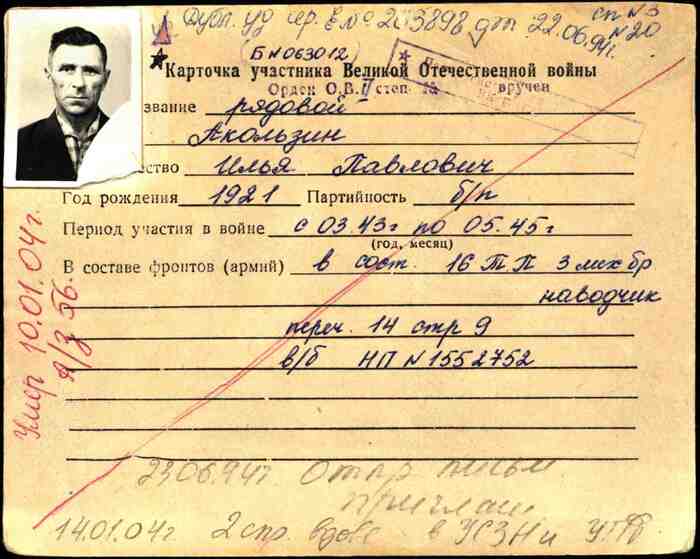 Дубл. уд сер. Е № 263898 дот 22.06.94г.
сп N 3
N 20
(Б N 063012)
Карточка участника Великой Отечественной войны
Орден О.В. II степ № вручен
звание рядовой
Акользин
ство Илья Павлович
Год рождения 1921 Партийность б/п
Период участия в войне с 03.43г по 05.45г
(год, месяц)
В составе фронтов (армий) в сост. 16 Т.П 3 мех бр
наводчик
переч. 14 стр 9
в/б НП N 1552752
Умер 10.01.04г.
а/з 56.
23.06.94г. Отпр письм
приглаш
14.01.04г 2 спр. вдове в УСЗН и УПФ